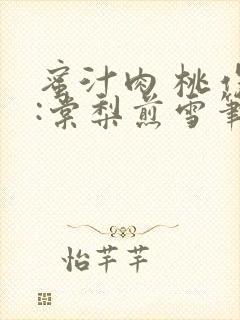 蜜汁肉桃 作
:棠梨煎雪筆
怡芊芊